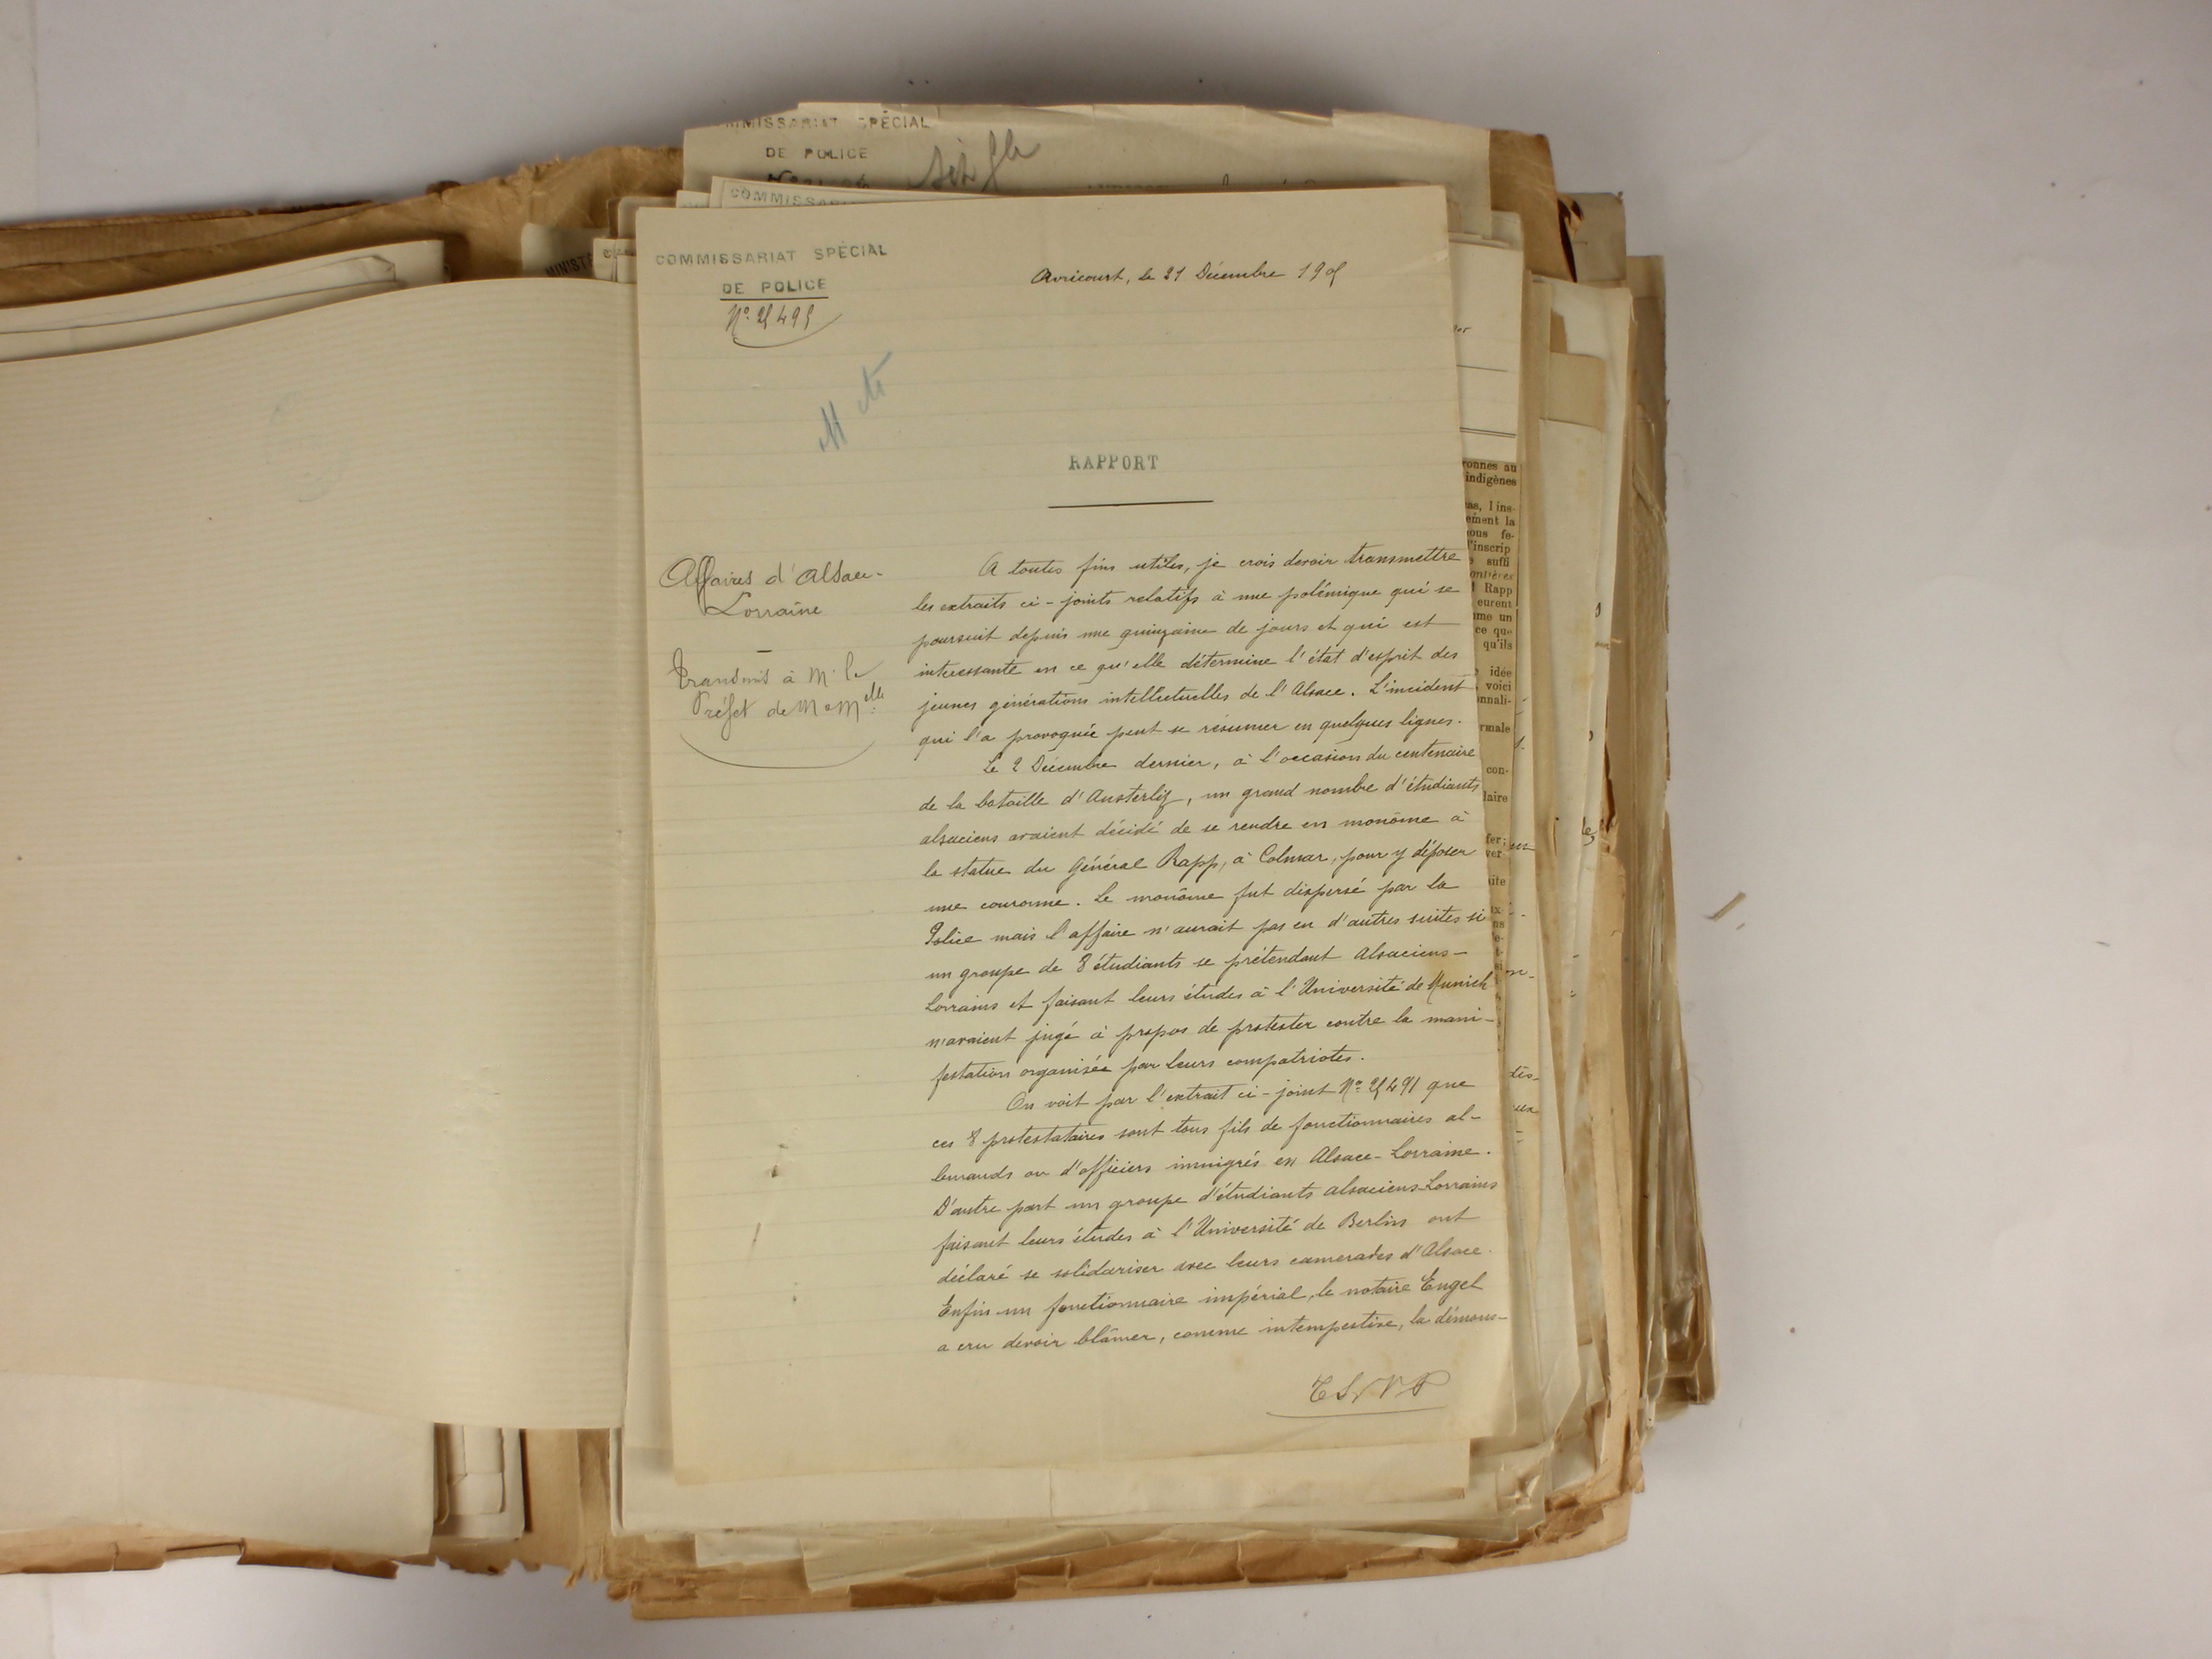 MMISSARIAT SPÉCIAL
DE POLICE
COMMISSARI
MINISTÈ
COMMISSARIAT SPÉCIAL
DE POLICE
Avricourt, le 21 Décembre 1905
RAPPORT
Affaires d'Alsace-
Lorraine
Transmis à M. le
Préfet de M & M elle
A toutes fins utiles, je crois devoir transmettre
les extraits ci-joints relatifs à une polémique qui se
poursuit depuis une quinzaine de jours et qui est
intéressante en ce qu'elle détermine l'état d'esprit des
jeunes générations intellectuelles de l'Alsace. L'incident
qui l'a provoquée peut se résumer en quelques lignes.
Le 2 Décembre dernier, à l'occasion du centenaire
de la bataille d'Austerliz, un grand nombre d'étudiants
alsaciens avaient décidé de se rendre en monôme à
la statue du Général Rapp, à Colmar, pour y déposer
une couronne. Le monôme fut dispersé par la
Police mais l'affaire n'aurait pas eu d'autres suites si
un groupe de 8 étudiants se prétendant Alsaciens-
Lorrains et faisant leurs études à l'Université de Munich
n'avaient jugé à propos de protester contre la mani-
festation organisée par leurs compatriotes.
On voit par l'extrait ci-joint No 25491 que
ces 8 protestataires sont tous fils de fonctionnaires al-
lemands ou d'officiers immigrés en Alsace-Lorraine.
D'autre part un groupe d'étudiants alsaciens-Lorrains
faisant leurs études à l'Université de Berlin ont
déclaré se solidariser avec leurs camerades d'Alsace.
Enfin un fonctionnaire impérial, le notaire Engel
a cru devoir blâmer, comme intempestive, la démons-
TSVP
ronnes au
indigènes
as, l'ins-
ement la
ous fe-
l'inscrip
suffi
ontières
Rapp
eurent
me un
ce que
qu'ils
idée
voici
nnali-
rmale
con-
laire
fer;
ver
ite